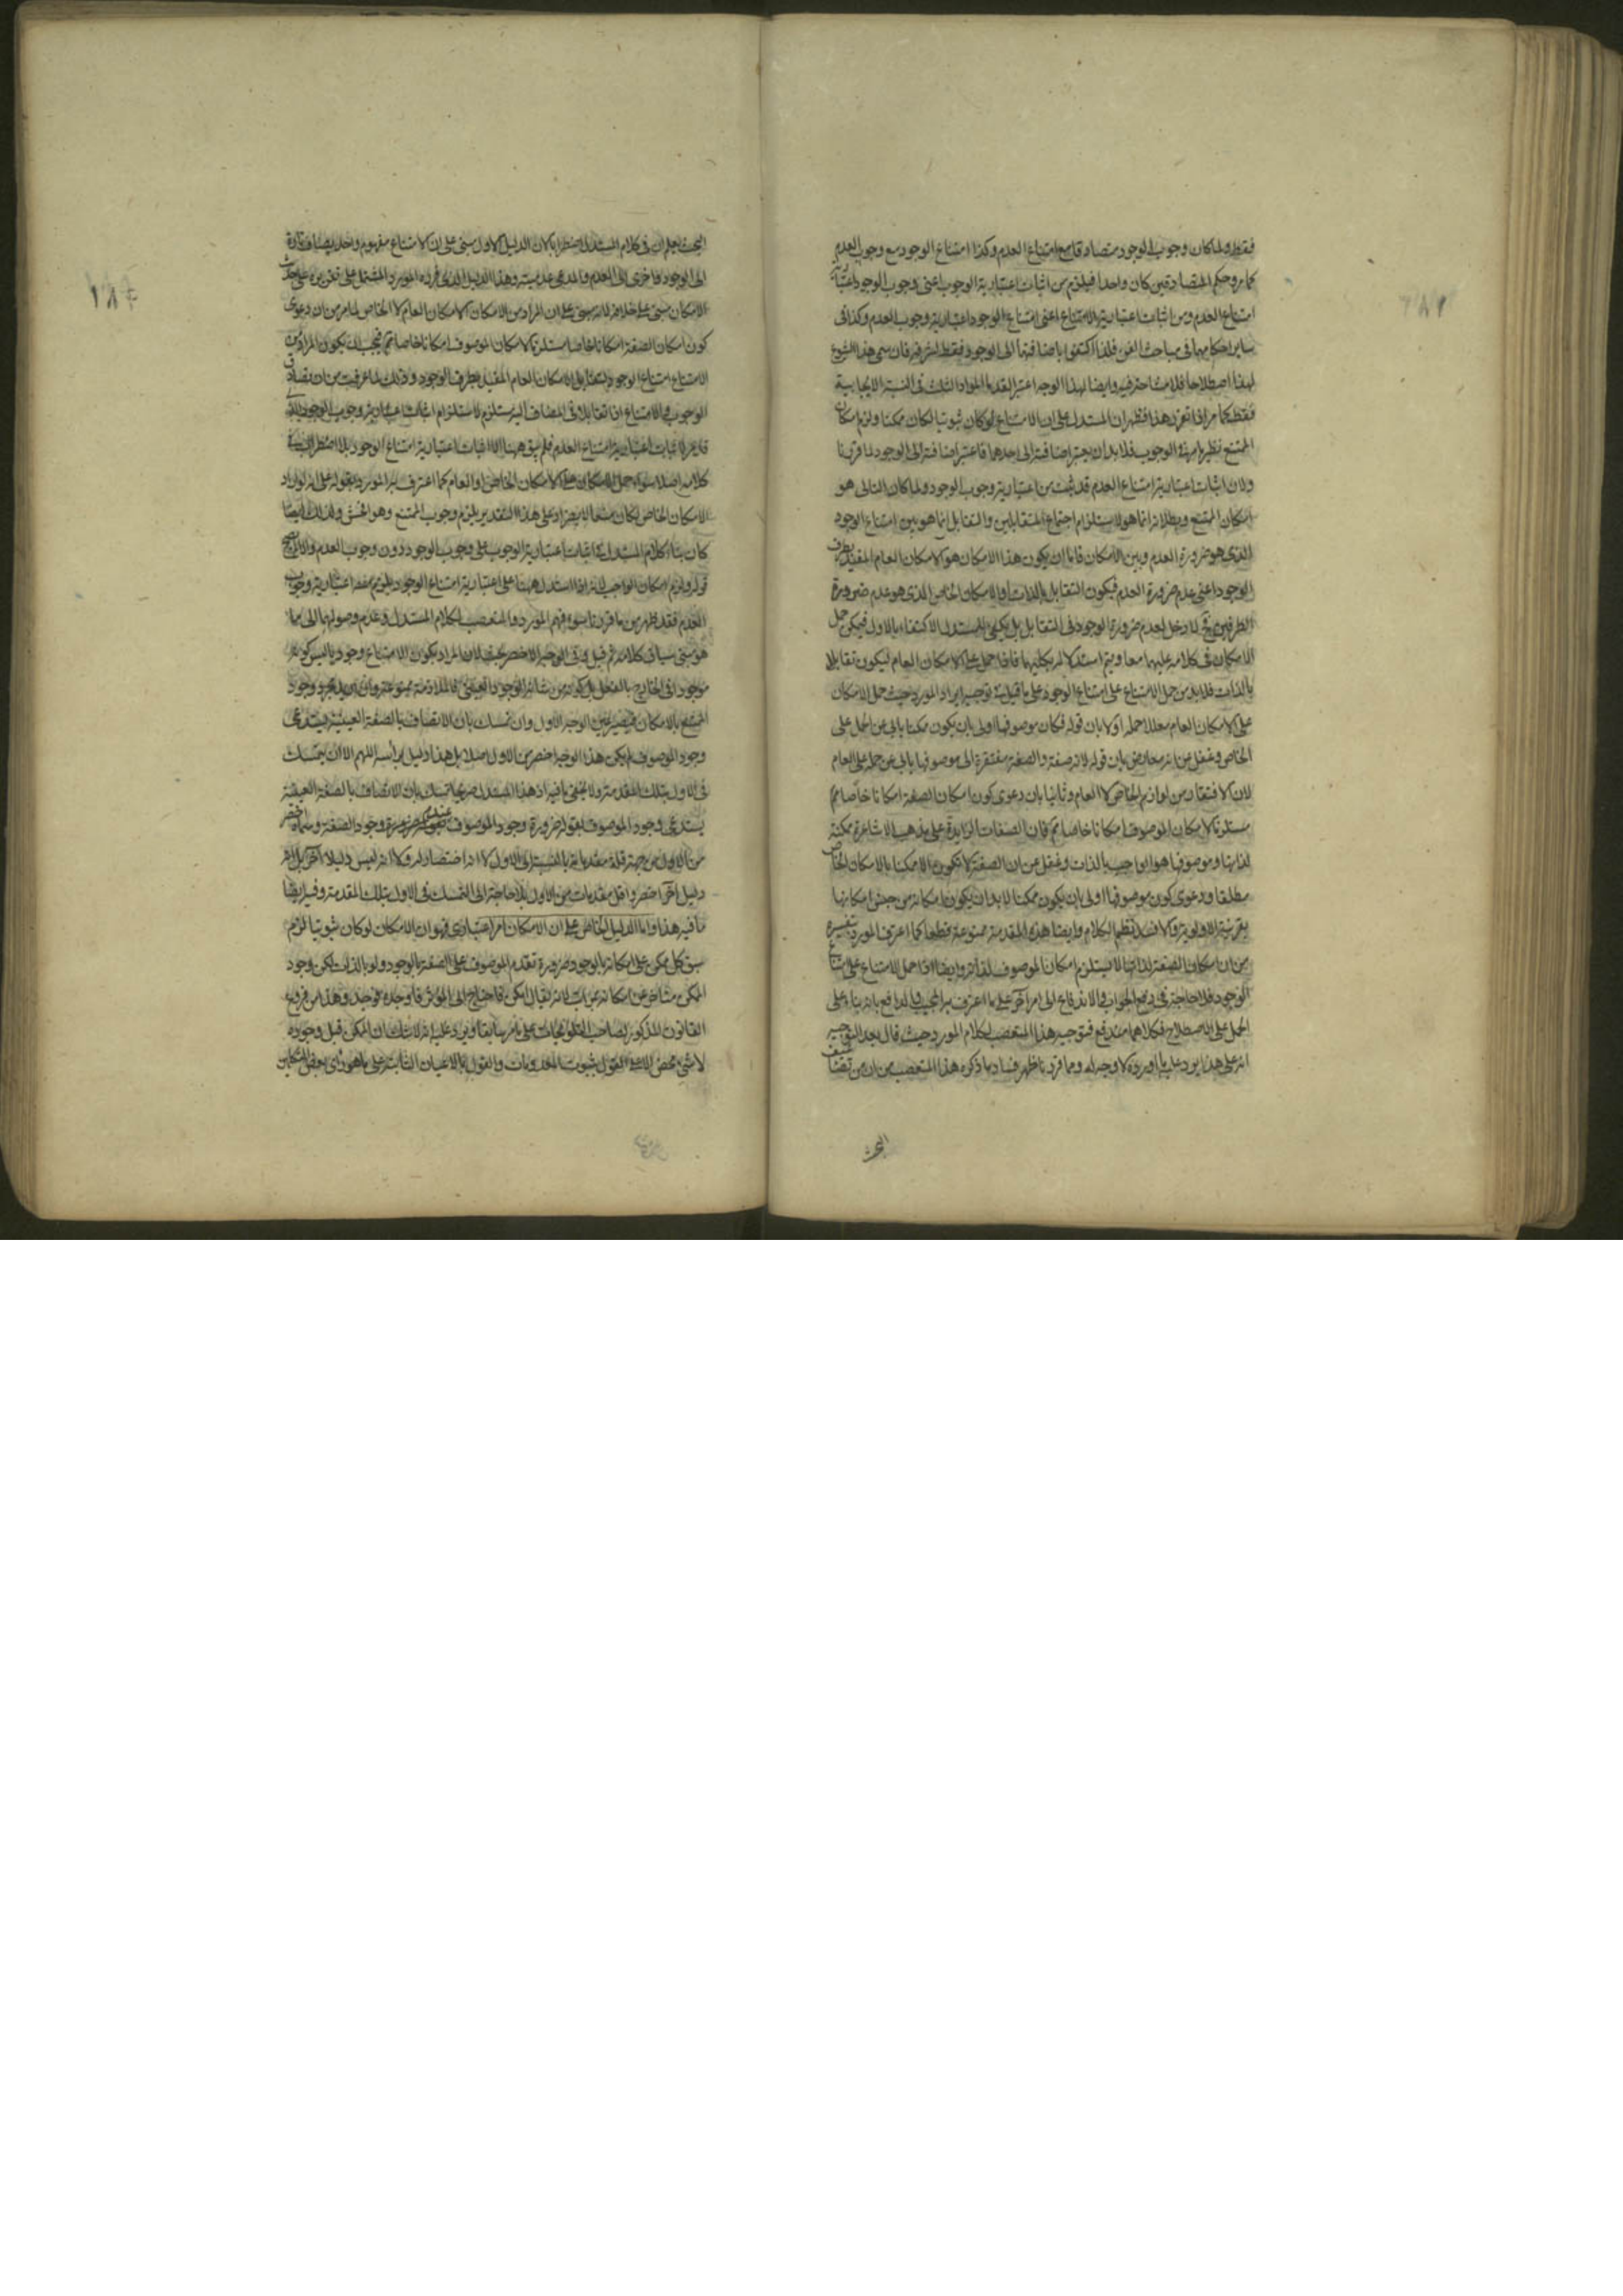 فقط ولما كان وجوب الوجود متصادقا مع امتناع العدم وكذا امتناع الوجود مع وجوب العدم
كما مر وحكم المتصادقين كان واحدا فيلزم من اثبات اعتبارية الوجوب اعنى وجوب الوجود اعتبارية
امتناع العدم ومن اثبات اعتبارية الامتناع اعنى امتناع الوجود اعتبارية وجوب العدم وكذا فى
ساير احكامهما فى مباحث الفن فلذا اكتفوا باضافتها الى الوجود فقط لشرفه فان سمى هذا الشيوع
لهذا اصطلاحا فلا مشاحة فيه وايضا لهذا الوجه اعتبر القدماء المواد الثلث فى النسبة الايجابية
فقط كما مر اذا تقرر هذا فظهر ان المستدل على ان الامتناع لو كان ثبوتيا لكان ممكنا ولزم امكان
الممتنع نظير ما مر فى الوجوب فلا بد ان يعتبر اضافته الى احدهما فاعتبر اضافته الى الوجود لما قررنا
ولان اثبات اعتبارية امتناع العدم قد يثبت من اعتبارية وجوب الوجود ولما كان التالى هو
امكان الممتنع وبطلانه انما هو لاستلزام اجتماع المتقابلين والتقابل انما هو بين امتناع الوجود
الذى هو ضرورة العدم وبين الامكان فاما ان يكون هذا الامكان هو الامكان العام المقيد بطرف
الوجود اعنى عدم ضرورة العدم فيكون التقابل بالذات او الامكان الخاص الذى هو عدم ضرورة
الطرفين فح لا دخل لعدم ضرورة الوجود فى التقابل بل يكفى للمستدل الاكتفاء بالاول فيمكن حمل
الامكان فى كلامه عليهما معا ويتم استدلاله بكليهما فاذا حمل على الامكان العام ليكون تقابلا
بالذات فلا بد من حمل الامتناع على امتناع الوجود على ما قيل فى توجيه ايراد المورد حيث حمل الامكان
على الامكان العام معللا حمله اولا بان قوله فكان موصوفها اولى بان يكون ممكنا يابى عن الحمل على
الخاص وغفل عن انه معارض بان قوله لانه صفة والصفة مفتقرة الى موصوفها يابى عن حمله على العام
لان الافتقار من لوازم الخاص لا العام وثانيا بان دعوى كون امكان الصفة امكانا خاصا
مستلزما لامكان الموصوف امكانا خاصا فان الصفات الزايدة على مذهب الاشاعرة ممكنة
لذاتها وموصوفها هو الواجب بالذات وغفل عن ان الصفة لا تكون الا ممكنا بالامكان الخاص
مطلقا ودعوى كون موصوفها اولى بان يكون ممكنا لا بد ان يكون امكانه من جنس امكانها
بقرينة الاولوية والا فسد نظم الكلام وايضا هذه المقدمة ممنوعة قطعا كما اعترف المورد بنفسه
من ان امكان الصفة لذاتها لا يستلزم امكان الموصوف لذاته وايضا اذا حمل الامتناع على امتناع
الوجود فلا حاجة فى دفع الجواب والاندفاع الى امر اخر على ما اعترف به المجيب والدافع بانه بناء على
الحمل على الاصطلاح فكلاهما مندفع فتوجيه هذا المتعصب لكلام المورد حيث قال بعد التوجيه
انه على هذا يرد عليه ما اورده لا وجه له ومما قررنا ظهر فساد ما ذكره هذا المتعصب من ان من تضاعيف
البحث
البحث يعلم ان فى كلام المستدل اضطرابا لان الدليل الاول مبنى على ان الامتناع مفهوم واحد يضاف تارة
الى الوجود واخرى الى العدم والمدعى عدميته وهذا الدليل الذى قرره المورد المشتمل على تقريره على حديث
الامكان مبنى على خلافه لانه مبنى على ان المراد من الامكان الامكان العام لا الخاص لما مر من ان دعوى
كون امكان الصفة امكانا خاصا مستلزما لامكان الموصوف امكانا خاصا فيجب ان يكون المراد من
الامتناع امتناع الوجود لتقابل الامكان العام المقيد بطرف الوجود وذلك لما عرفت من ان تصادق
الوجوب والامتناع اذا تقابلا فى المضاف اليه يستلزم لاستلزام اثبات اعتبارية وجوب الوجود الذى
قد مر لاثبات اعتبارية امتناع العدم فلم يبق ههنا الا اثبات اعتبارية امتناع الوجود بلا اضطراب فى
كلامه اصلا سواء حمل الامكان على الامكان الخاص او العام كما اعترف به المورد بقوله على انه لو اراد
الامكان الخاص لكان ممنعا لا يضر اذ على هذا التقدير يلزم وجوب الممتنع وهو افحش ولذلك ايضا
كان بناء كلام المستدل فى اثبات اعتبارية الوجوب على وجوب الوجود دون وجوب العدم والا لم يصح
قوله ولزم امكان الواجب لانه اذا استدل ههنا على اعتبارية امتناع الوجود يلزم منها اعتبارية وجوب
العدم فقد ظهر من ما قررنا سوء فهم المورد والمتعصب لكلام المستدل وعدم وصولهما الى ما
هو مبنى سياق كلامه ثم قيل فى الوجه الاخصر بحث لان المراد بكون الامتناع وجوديا ليس كونه
موجودا فى الخارج بالفعل بل كونه من شانه الوجود العينى فالملازمة ممنوعة وان اريد مجرد وجود
الممتنع بالامكان فيصير عين الوجه الاول وان تمسك بان الاتصاف بالصفة العينية يستدعى
وجود الموصوف لم يكن هذا الوجه اخصر من الاول مثلا بل هذا دليل براسه اللهم الا ان يتمسك
فى الاول بتلك المقدمة ولا يخفى ما فيه اذ هذا المستدل صريحا تمسك بان الاتصاف بالصفة العينية
يستدعى وجود الموصوف بقوله ضرورة وجود الموصوف عند وجود الصفة وسماه اخصر
من الاول من جهة قلة مقدماته بالنسبة الى الاول لا انه اختصار له والا انه ليس دليلا اخر بل هو
دليل آخر اخصر واقل مقدمات من الاول بلا حاجة الى التمسك فى الاول بتلك المقدمة وفيه ايضا
ما فيه هذا واما الدليل الخاص على ان الامكان امر اعتبارى فهو ان الامكان لو كان ثبوتيا لزم
سبق كل ممكن على امكانه بالوجود ضرورة تقدم الموصوف على الصفة بالوجود ولو بالذات لكن وجود
الممكن متاخر عن امكانه بمراتب لانه يقال امكن فاحتاج الى المؤثر فاوجده فوجد وهذا من فروع
القانون المذكور لصاحب التلويحات على ما مر سابقا ويرد عليه انه لا شك ان الممكن قبل وجوده
لا شئ محض القول بثبوت المعدومات والقول بالاعيان الثابتة على ما هو راى بعض المتكلمين